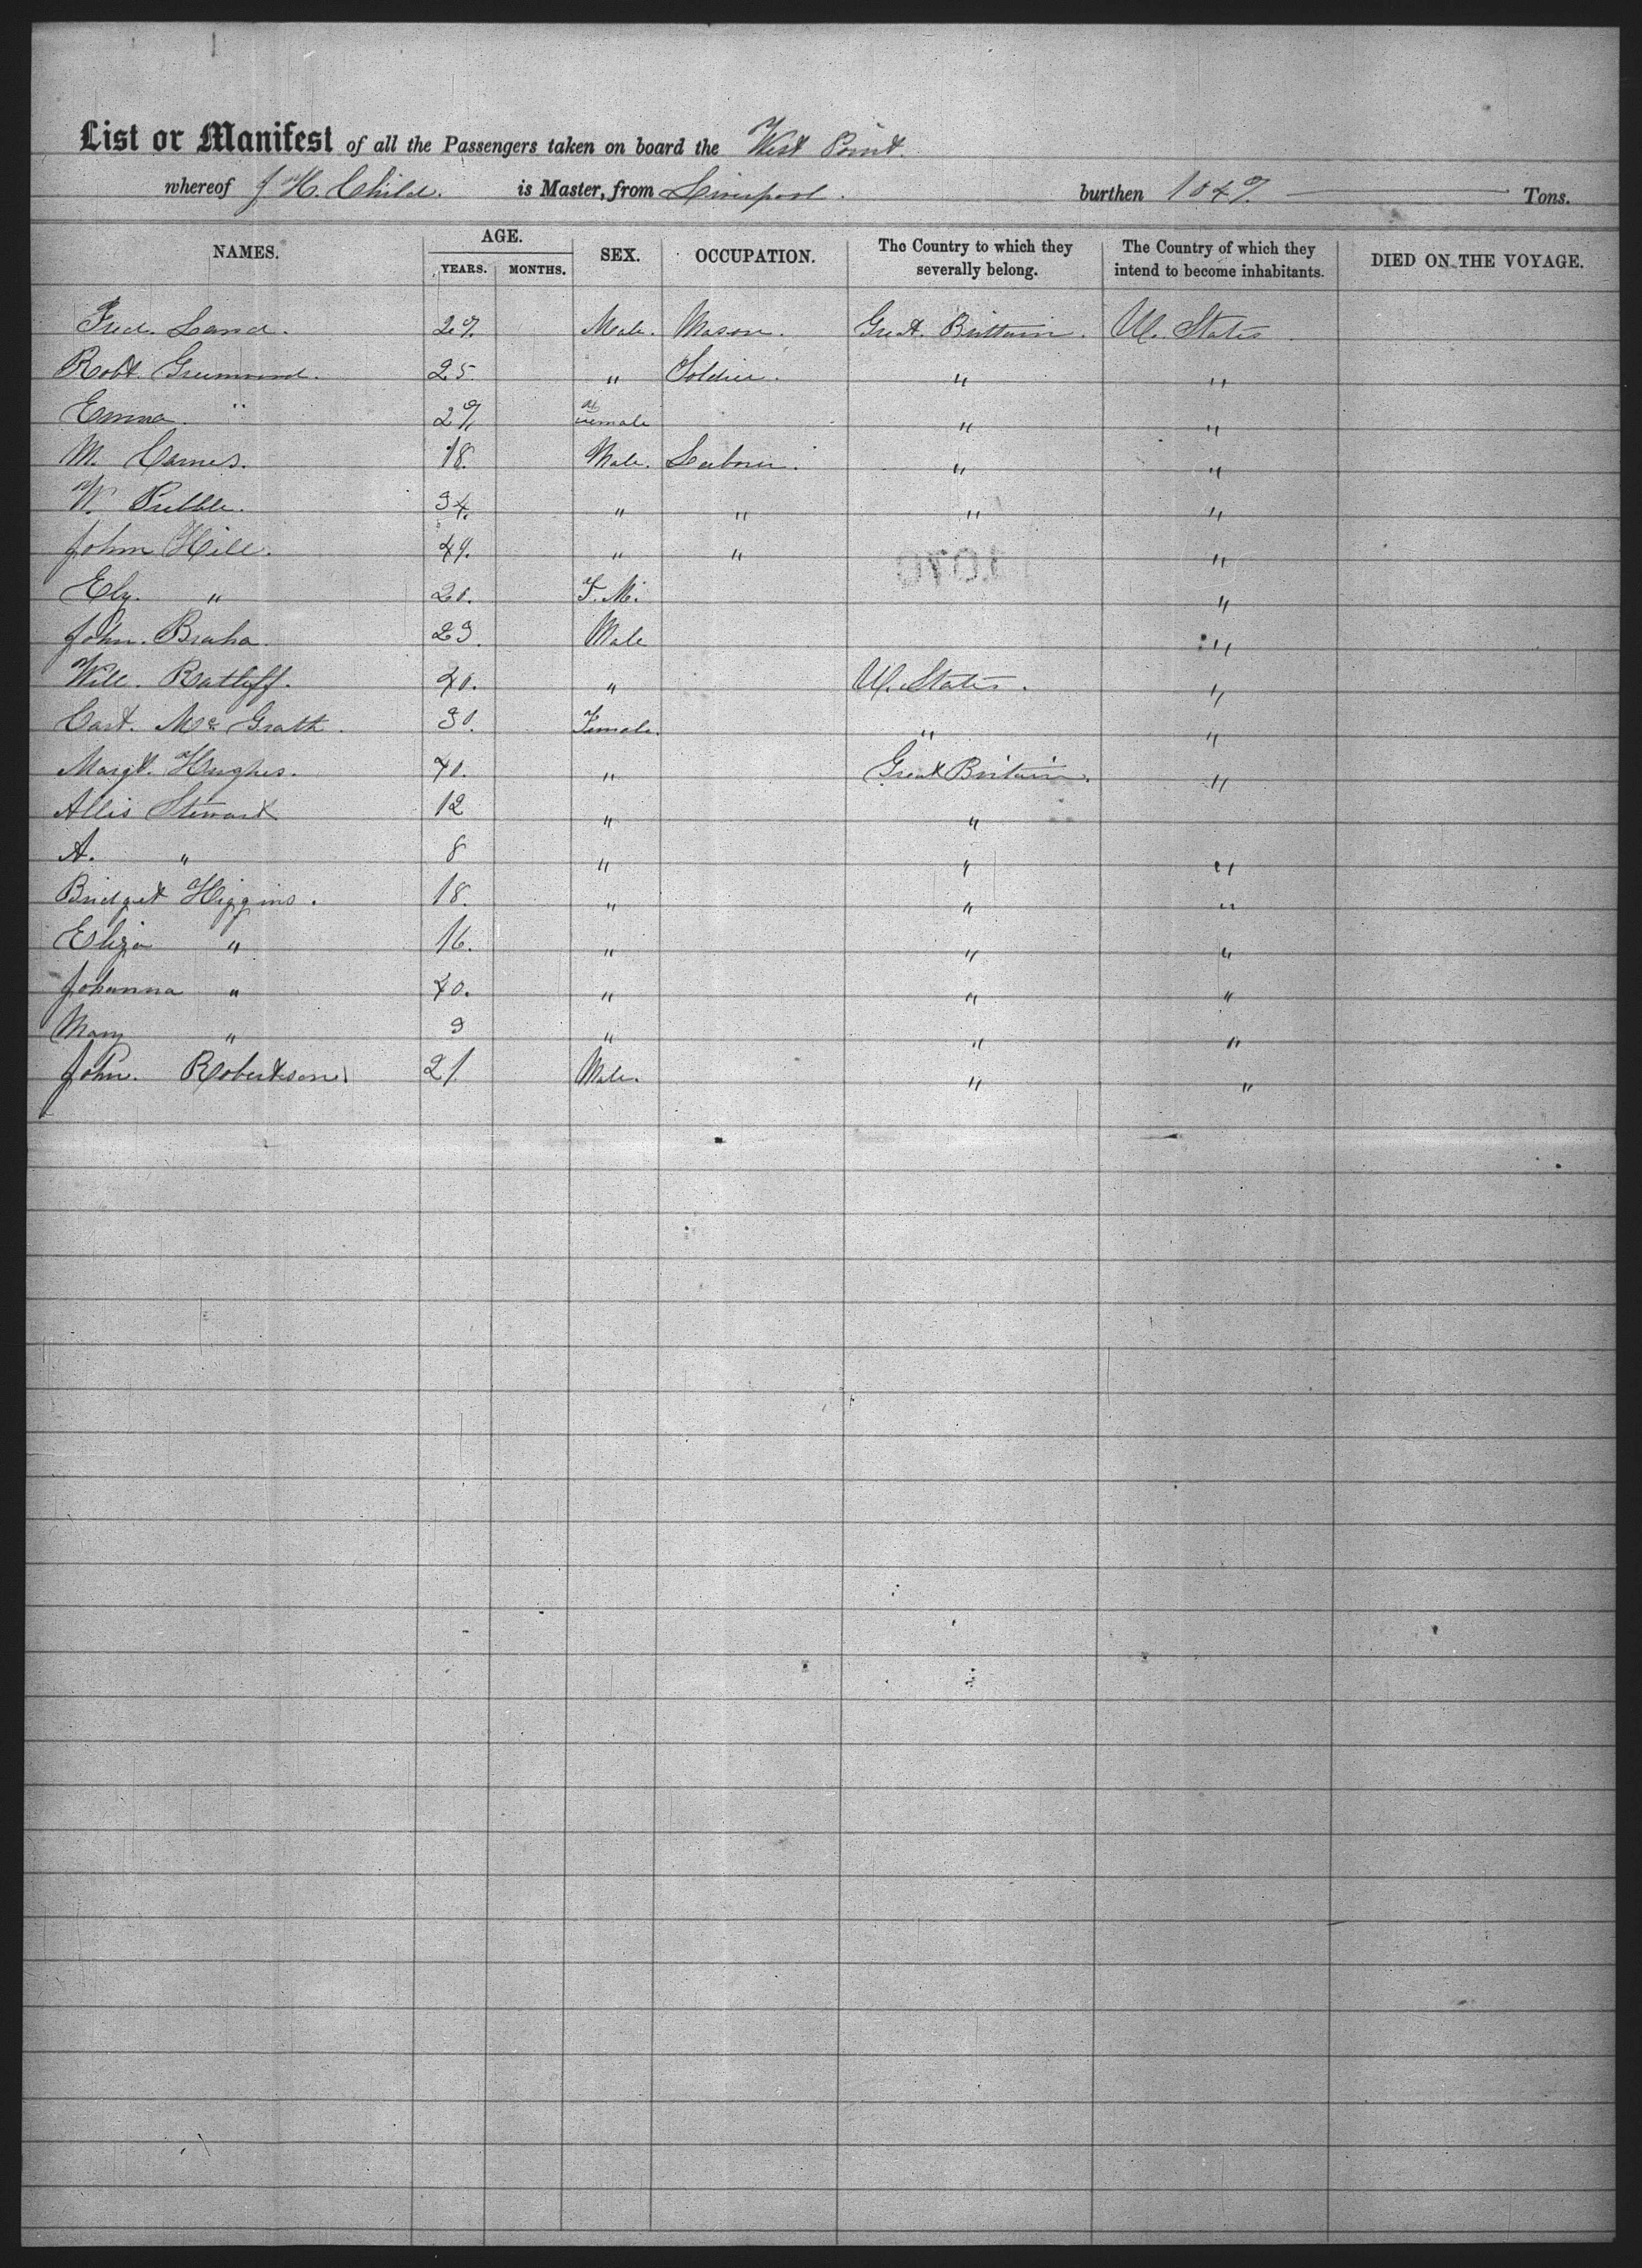 List or Manifest of all the Passengers taken on board the West Point.
whereof J H. Child. is Master, from Liverpool. burthen 1047. Tons.
NAMES. AGE. YEARS. MONTHS. SEX. OCCUPATION. The Country to which they severally belong. The Country of which they intend to become inhabitants. DIED ON THE VOYAGE.
Fred. Land. 27. Male. Mason. Great. Brittain. U. States
Robt. 25. " Soldier. " "
Emma. " 27. Female " "
M. Carnes. 18. Male. Laborer. " "
W. Pribble. 34. " " " "
John Hill. 49. " " "
Elz. " 20. F. M. "
John. Braha. 23. Male "
Will. Ratliff. 40. " U. States. "
Cart. Mc Grath. 30. Female. " "
Margt. Hughes. 40. " Great Britain. "
Allis Stewart 12 " " "
A. " 8 " " "
Bridget Higgins. 18. " " "
Eliza " 16. " " "
Johanna " 40. " " "
Mary " 9 " " "
John. Robertson 21. Male. " "